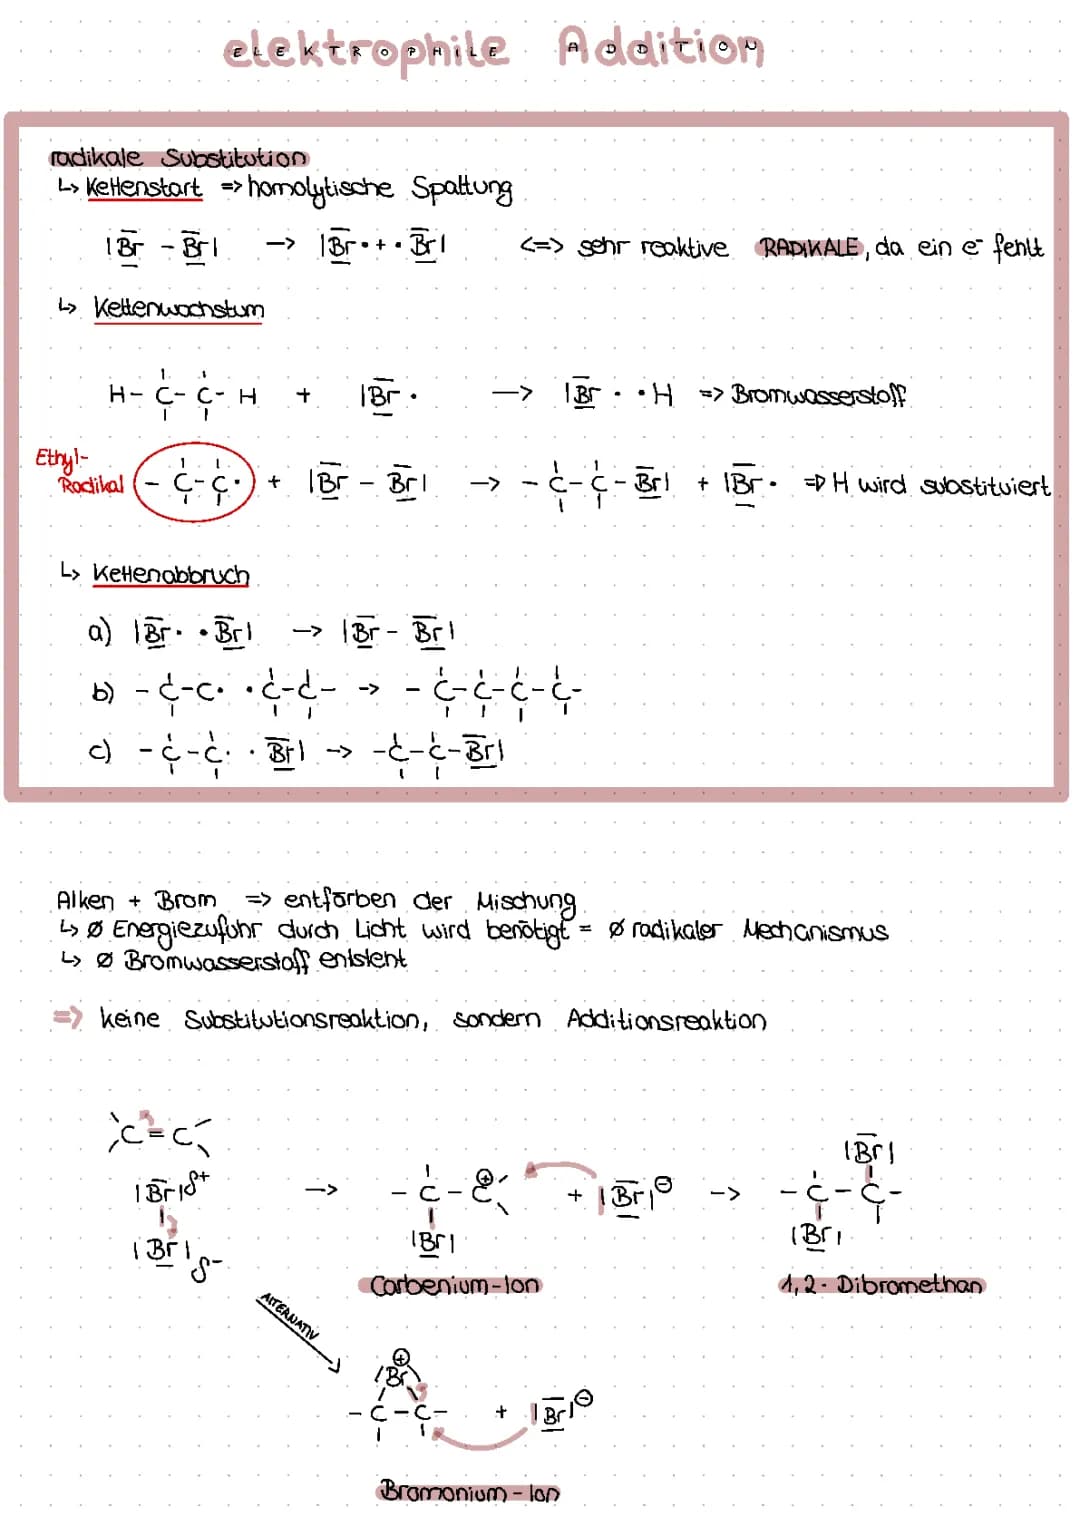 elektrophile Addition
ELEKTROPHILE ADDITION
radikale Substitution
↳ Kettenstart => homolytische Spaltung
|Br - Br| -> |Br • + • Br| <=> sehr reaktive RADIKALE, da ein e⁻ fehlt
↳ Kettenwachstum
H - C - C - H + |Br • -> |Br • • H => Bromwasserstoff
Ethyl-
Radikal - C - C • + |Br - Br| -> - C - C - Br| + |Br • => H wird substituiert
↳ Kettenabbruch
a) |Br • • Br| -> |Br - Br|
b) - C - C • • C - C - -> - C - C - C - C -
c) - C - C • • Br| -> - C - C - Br|
Alken + Brom => entfärben der Mischung
↳ ∅ Energiezufuhr durch Licht wird benötigt = ∅ radikaler Mechanismus
↳ ∅ Bromwasserstoff entsteht
=> keine Substitutionsreaktion, sondern Additionsreaktion
C = C
|Br| δ+
|Br| δ-
-> - C - C ⊕ + |Br| ⊖ -> - C - C -
|Br|
|Br|
|Br|
Carbenium-Ion
1,2-Dibromethan
ALTERNATIV
|Br ⊕
- C - C - + |Br| ⊖
Bromonium-Ion